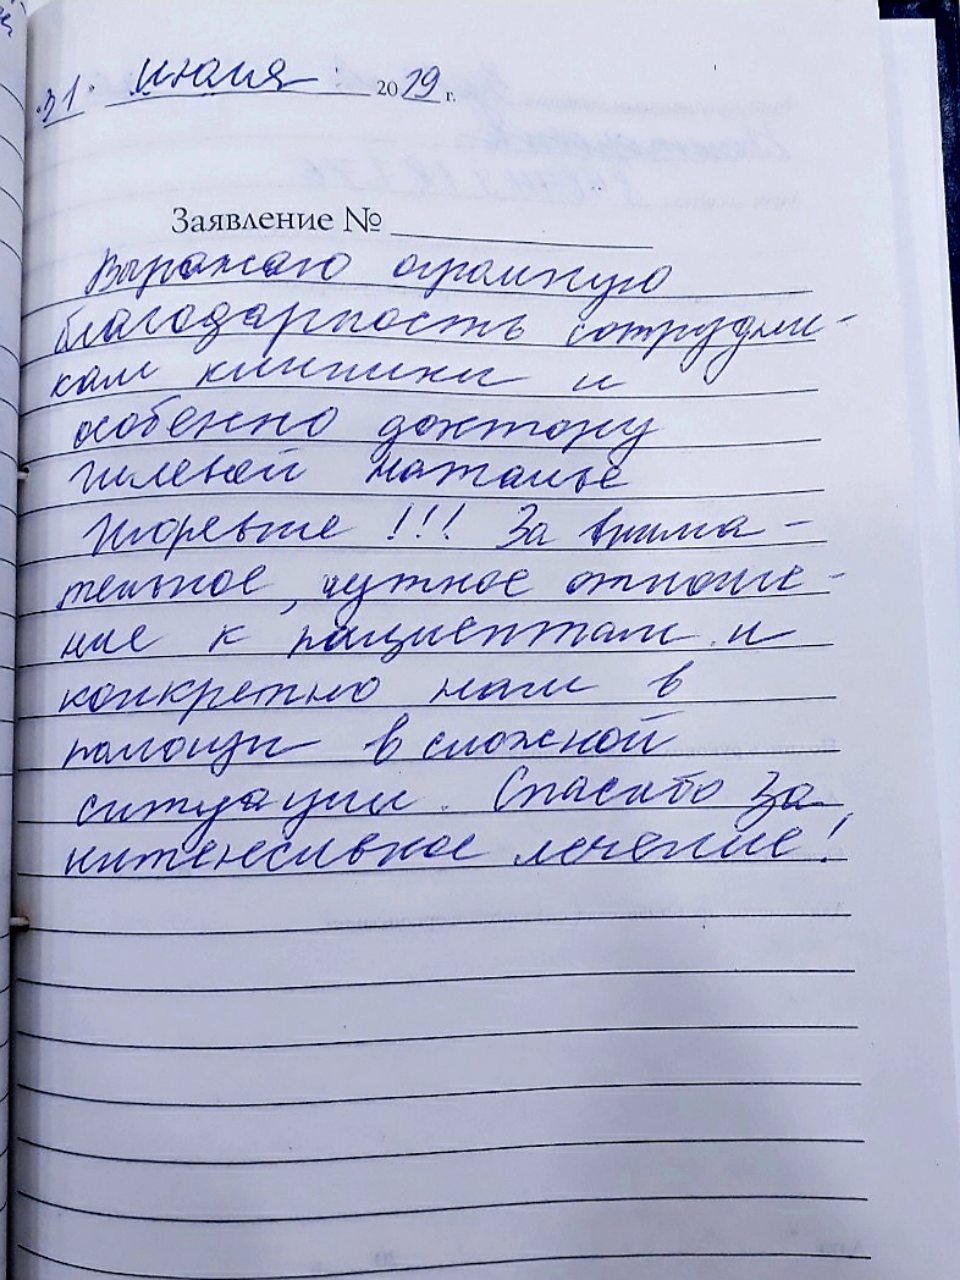 "31" июля 2019 г.
Заявление №
Выражаю огромную
благодарность сотрудни-
кам клиники и
особенно доктору
Гилевой Наталье
Игоревне !!! За внима-
тельное, чуткое отноше-
ние к пациентам и
конкретно нам в
помощи в сложной
ситуации. Спасибо за
интенсивное лечение!